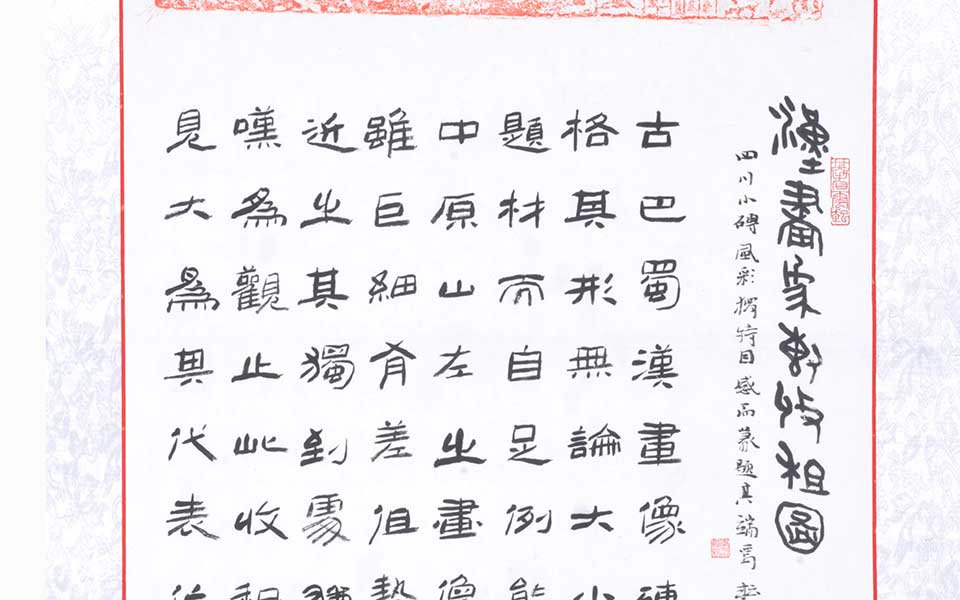 漢畫象收租圖
四川小磚風彩獨特因感而篆題其端焉
古巴蜀漢畫像磚
格其形無論大小
題材而自足例能
中原山左之畫像
雖巨細有差但勢
近之其獨到處
嘆為觀止此收租
見大為其代表作